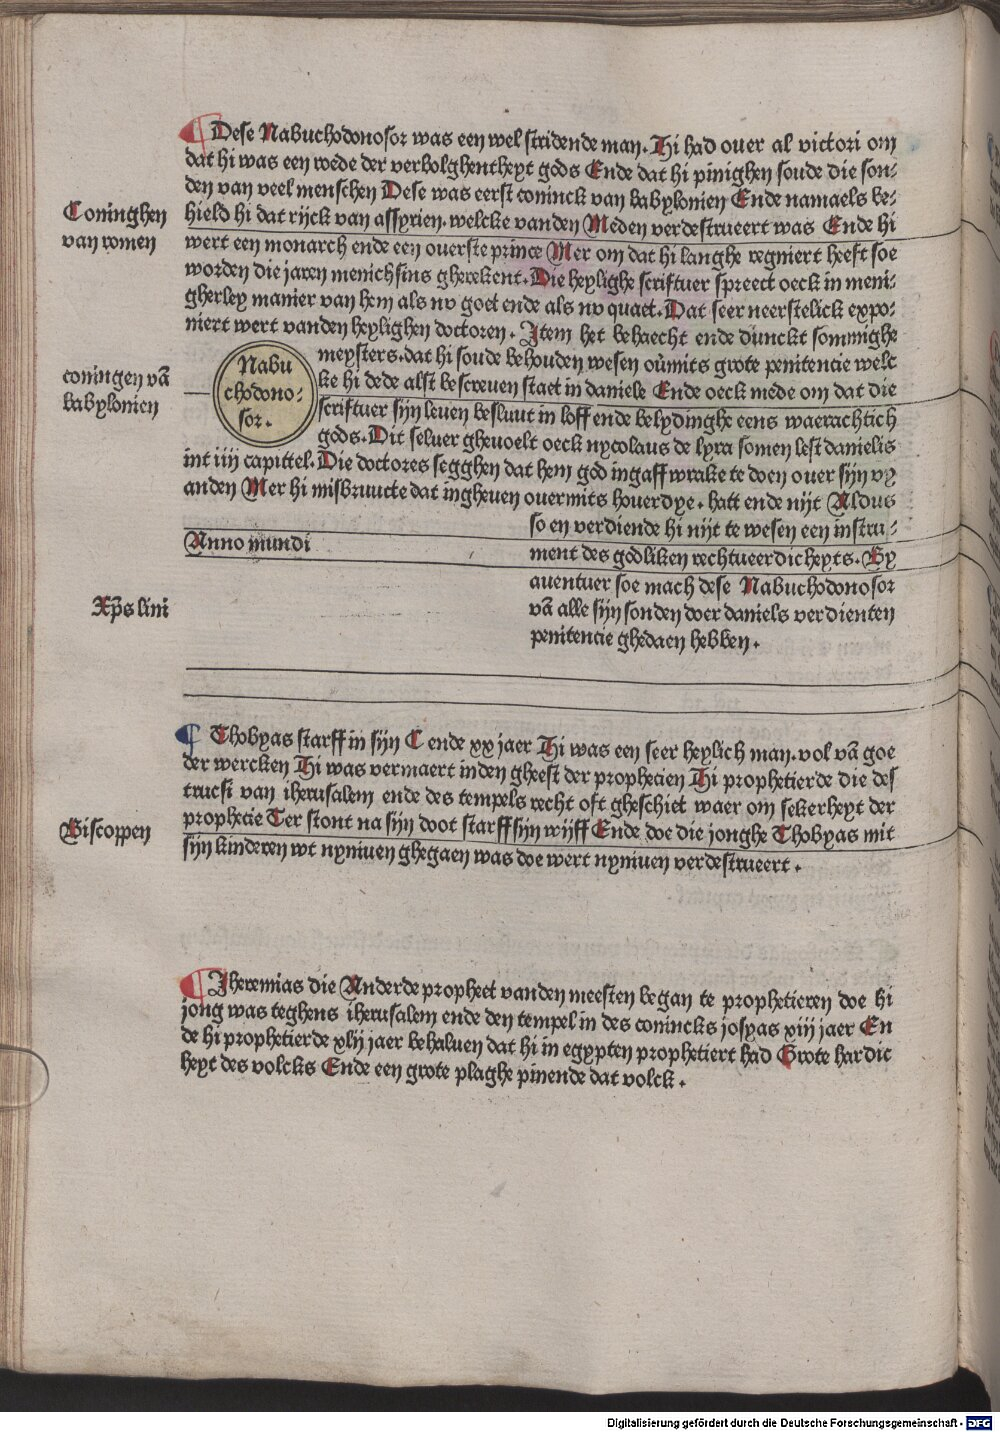 ¶ Dese Nabuchodonosor was een wel stridende man. Hi had ouer al victori om
dat hi was een roede der verbolghentheyt gods Ende dat hi pinighen soude die son⸗
den van veel menschen Dese was eerst coninck van babylonien Ende namaels be⸗
Coninghen
van romen
hield hi dat rijck van assyrien. welcke vanden Meden verdestrueert was Ende hi
wert een monarch ende een ouerste prince Mer om dat hi langhe regniert heeft soe
worden die jaren menichsins gherekent. Die heylighe scriftuer spreect oeck in meni⸗
gherley manier van hem als nv goet ende als nv quaet. Dat seer neerstelick expo⸗
niert wert vanden heylighen doctoren. Item het behaecht ende dunckt sommighe
meysters. dat hi soude behouden wesen ouͤmits grote penitencie welc
coningen vā
babylonien
Nabu
chodono⸗
sor.
ke hi dede alst bescreuen staet in daniele Ende oeck mede om dat die
scriftuer sijn leuen besluut in loff ende belydinghe eens waerachtich
gods. Dit seluer gheuoelt oeck nycolaus de lyra somen lest danielis
int iiij capittel. Die doctores segghen dat hem god ingaff wrake te doen ouer sijn vy
anden Mer hi misbruucte dat ingheuen ouermits houerdye. hatt ende nijt Aldus
so en verdiende hi nijt te wesen een instru⸗
Anno mundi
ment des godliken rechtueerdicheyts. By
auentuer soe mach dese Nabuchodonosor
Xp̄s lini
vā alle sijn sonden doer daniels verdienten
penitencie ghedaen hebben.
¶ Thobyas starff in sijn C ende xx jaer Hi was een seer heylich man. vol vā goe
der wercken Hi was vermaert inden gheest der prophecien Hi prophetierde die des
trucsi van iherusalem ende des tempels recht oft gheschiet waer om sekerheyt der
Biscoppen
prophecie Ter stont na sijn doot starff sijn wijff Ende doe die jonghe Thobyas mit
sijn kinderen wt nyniuen ghegaen was doe wert nyniuen verdestrueert.
¶ Iheremias die Anderde propheet vanden meesten began te prophetieren doe hi
jong was teghens iherusalem ende den tempel in des conincks josyas xiij jaer En
de hi prophetierde xlij jaer behaluen dat hi in egypten prophetiert had Grote hardic
heyt des volcks Ende een grote plaghe pinende dat volck.
Digitalisierung gefördert durch die Deutsche Forschungsgemeinschaft - DFG